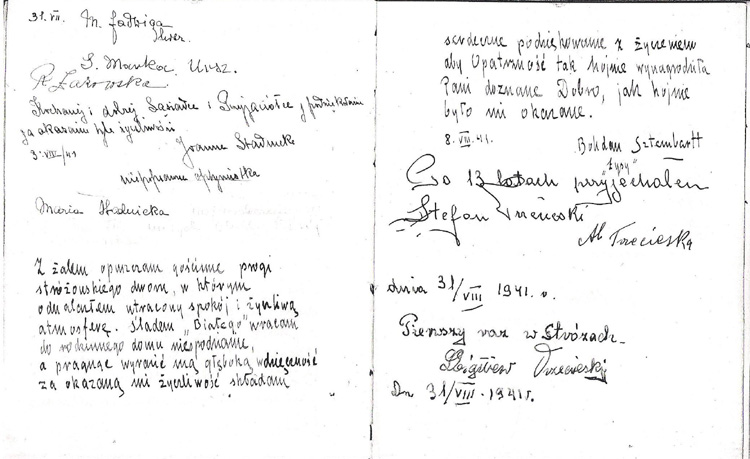 31. VII. M. Jadwiga
S. Marka Ursz.
Kochanej i dobrej Sąsiadce i Przyjaciółce z podziękowaniem
za okazaną tyle życzliwości
3-VIII-/41 Joanna Stadnicka
niepoprawna optymistka
Maria Stadnicka
Z żalem opuszczam gościnne progi
stróżowskiego dworu, w którym
odnalazłem utracony spokój i życzliwą
atmosferę. Śladem „Białego" wracam
do rodzinnego domu niespodzianie,
a pragnąc wyrazić mą głęboką wdzięczność
za okazaną mi życzliwość składam
serdeczne podziękowanie z życzeniem
aby Opatrzność tak hojnie wynagrodziła
Pani doznane Dobro, jak hojnie
było mi okazane.
8. VIII. 41. Bohdan Sztembartt
Po 13 latach przyjechałem
Stefan
Al Trzecieska
dnia 31/VIII 1941. r.
Pierwszy raz w Stróżach
Zbigniew Trzecieski
Dn 31/VIII. 1941 r.